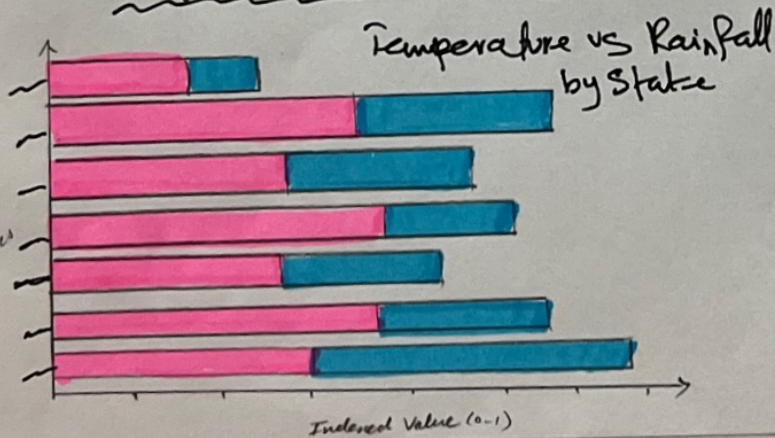 Temperature vs Rainfall
by State
Indexed Value (0-1)